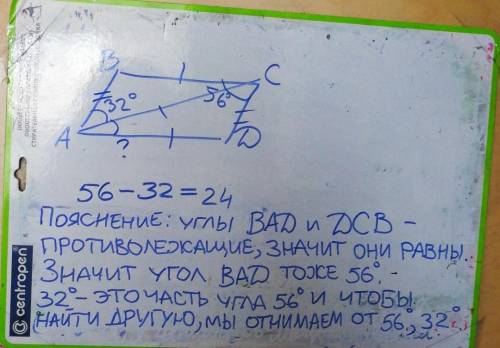 B
C
32°
56°
A
?
D
56-32=24
Пояснение: углы BAD и DCB -
противолежащие, значит они равны.
Значит угол BAD тоже 56°.
32° - это часть угла 56° и чтобы
найти другую, мы отнимаем от 56°, 32°
centropen